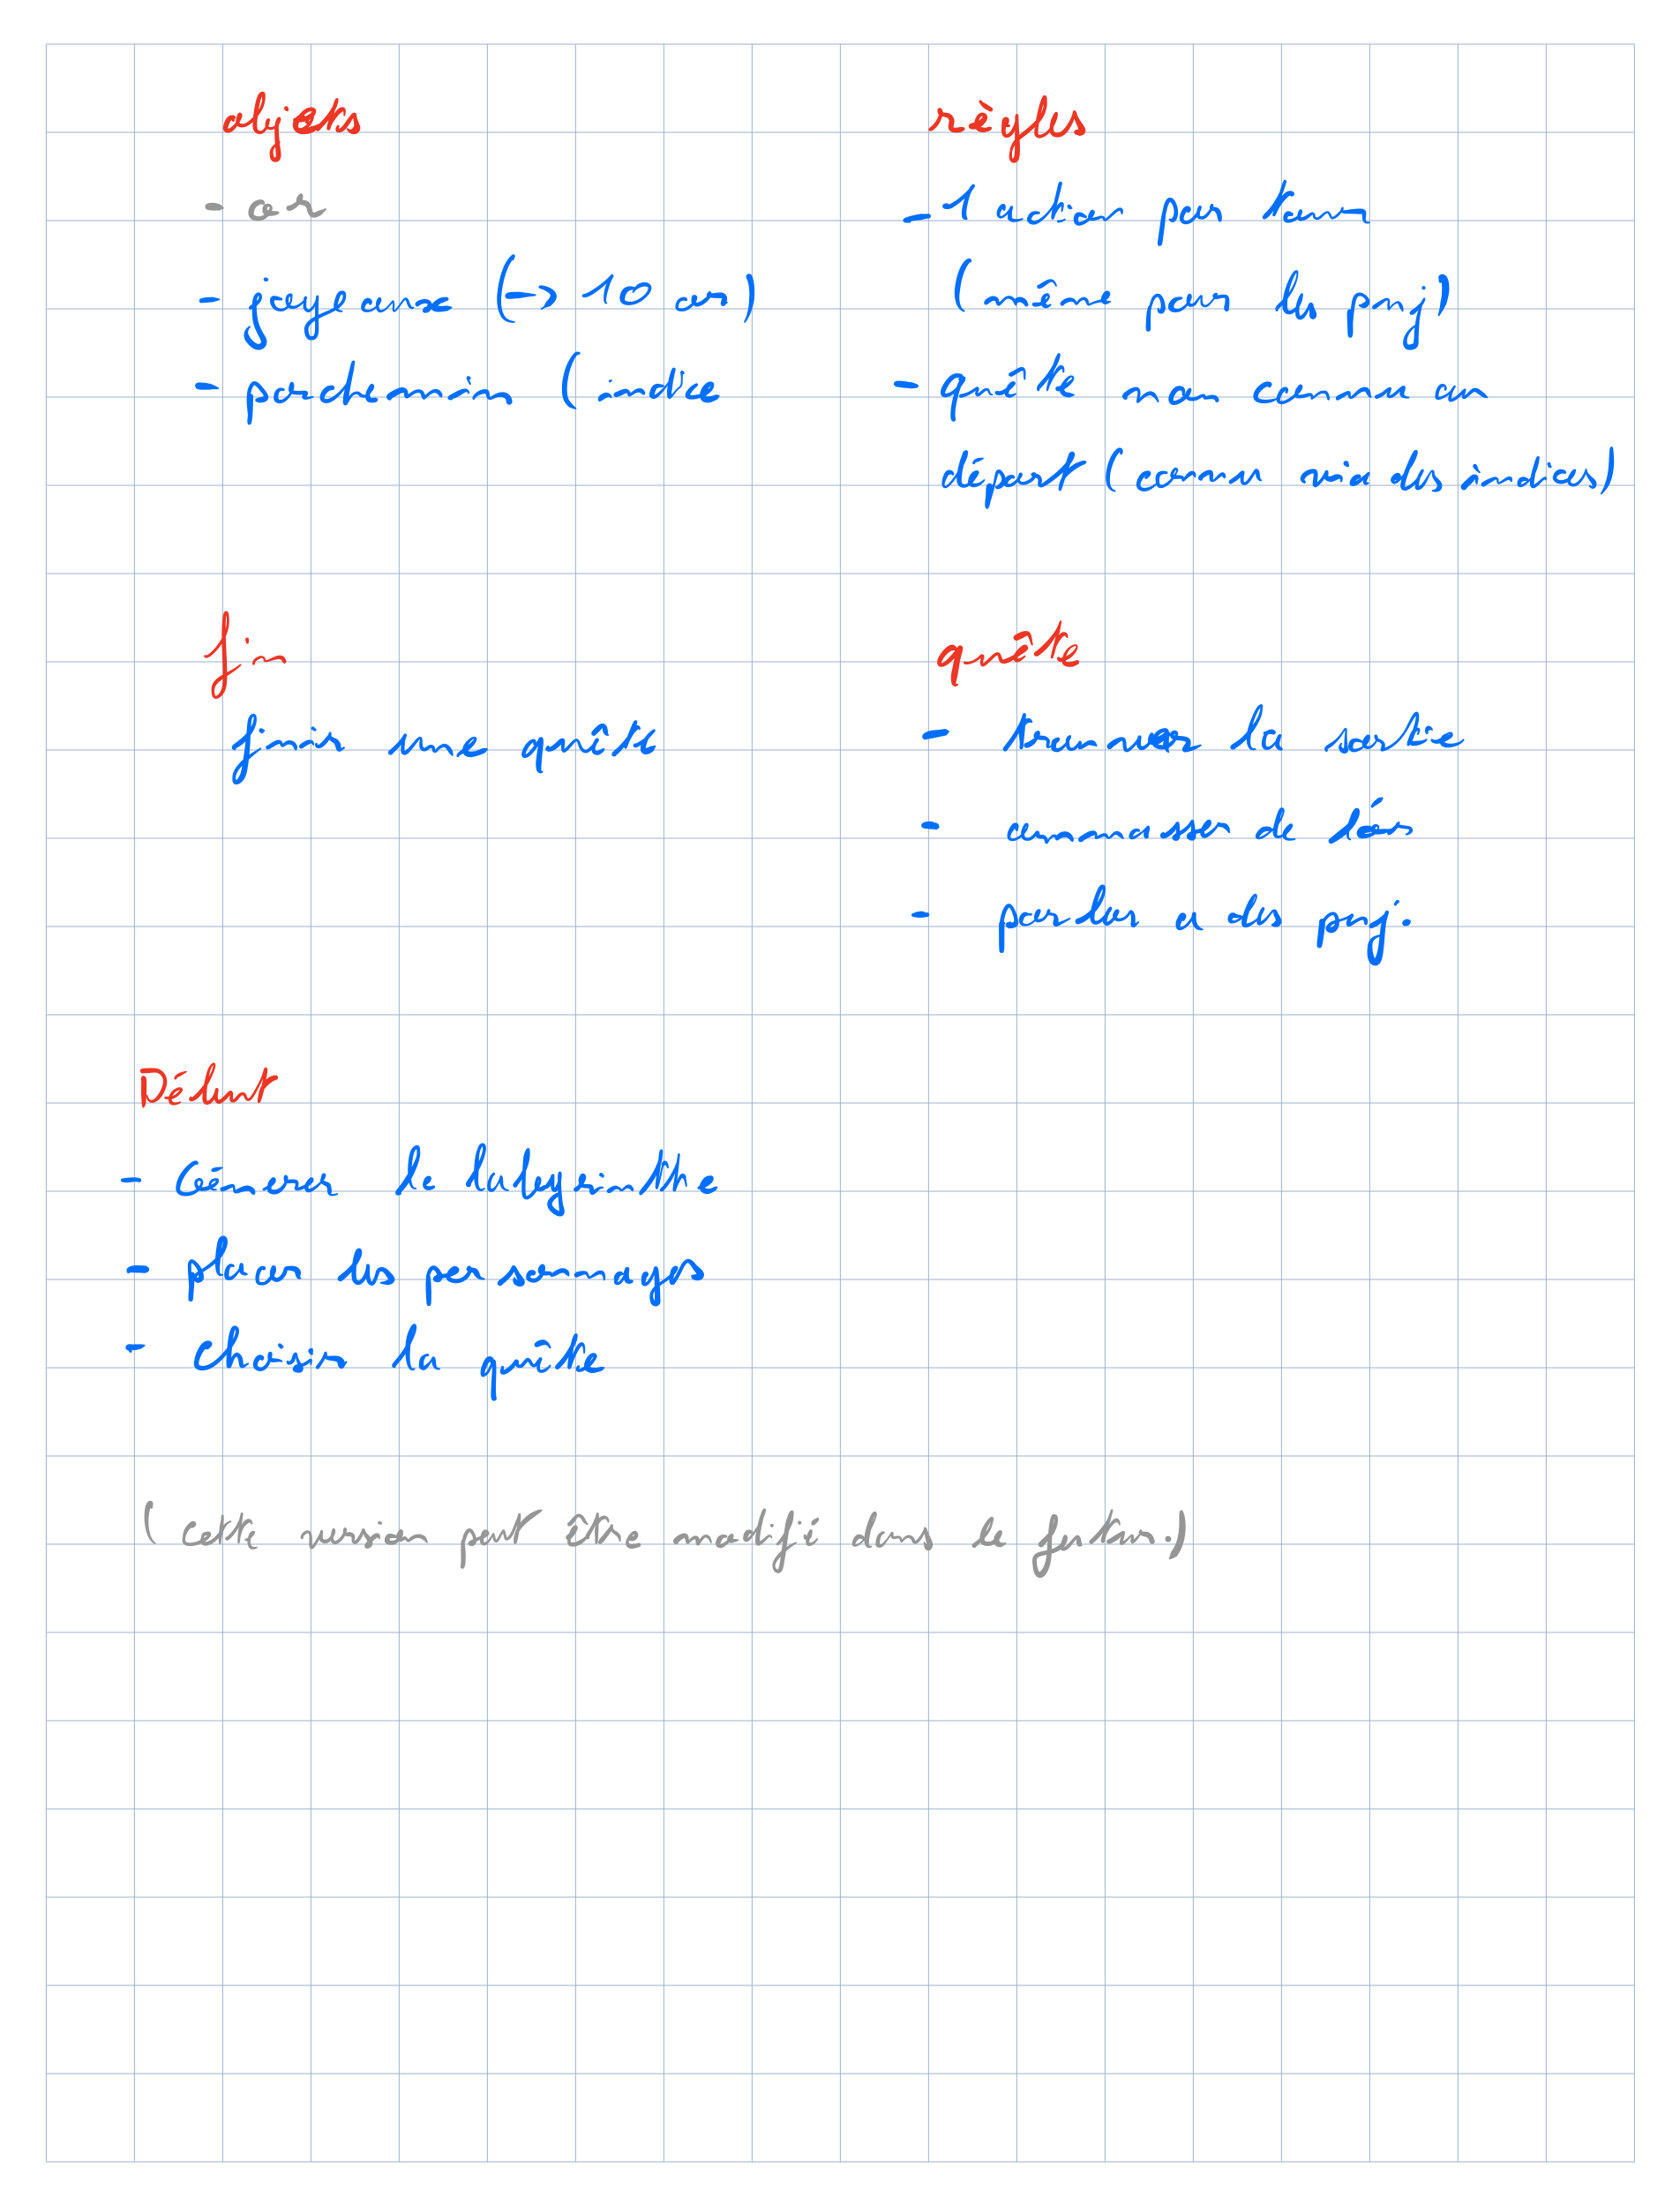 objets
- or
- joyeaux (-> 10 or)
- parchemin (indice
règles
- 1 action par tour
(même pour les pnj)
- quête non connu au
départ (connu via des indices)
fin
finir une quête
quête
- trouver la sortie
- ammasser de l'or
- parler a des pnj.
Début
- Génerer le labyrinthe
- placer les personnages
- choisir la quête
(cette version peut être modifié dans le futur.)